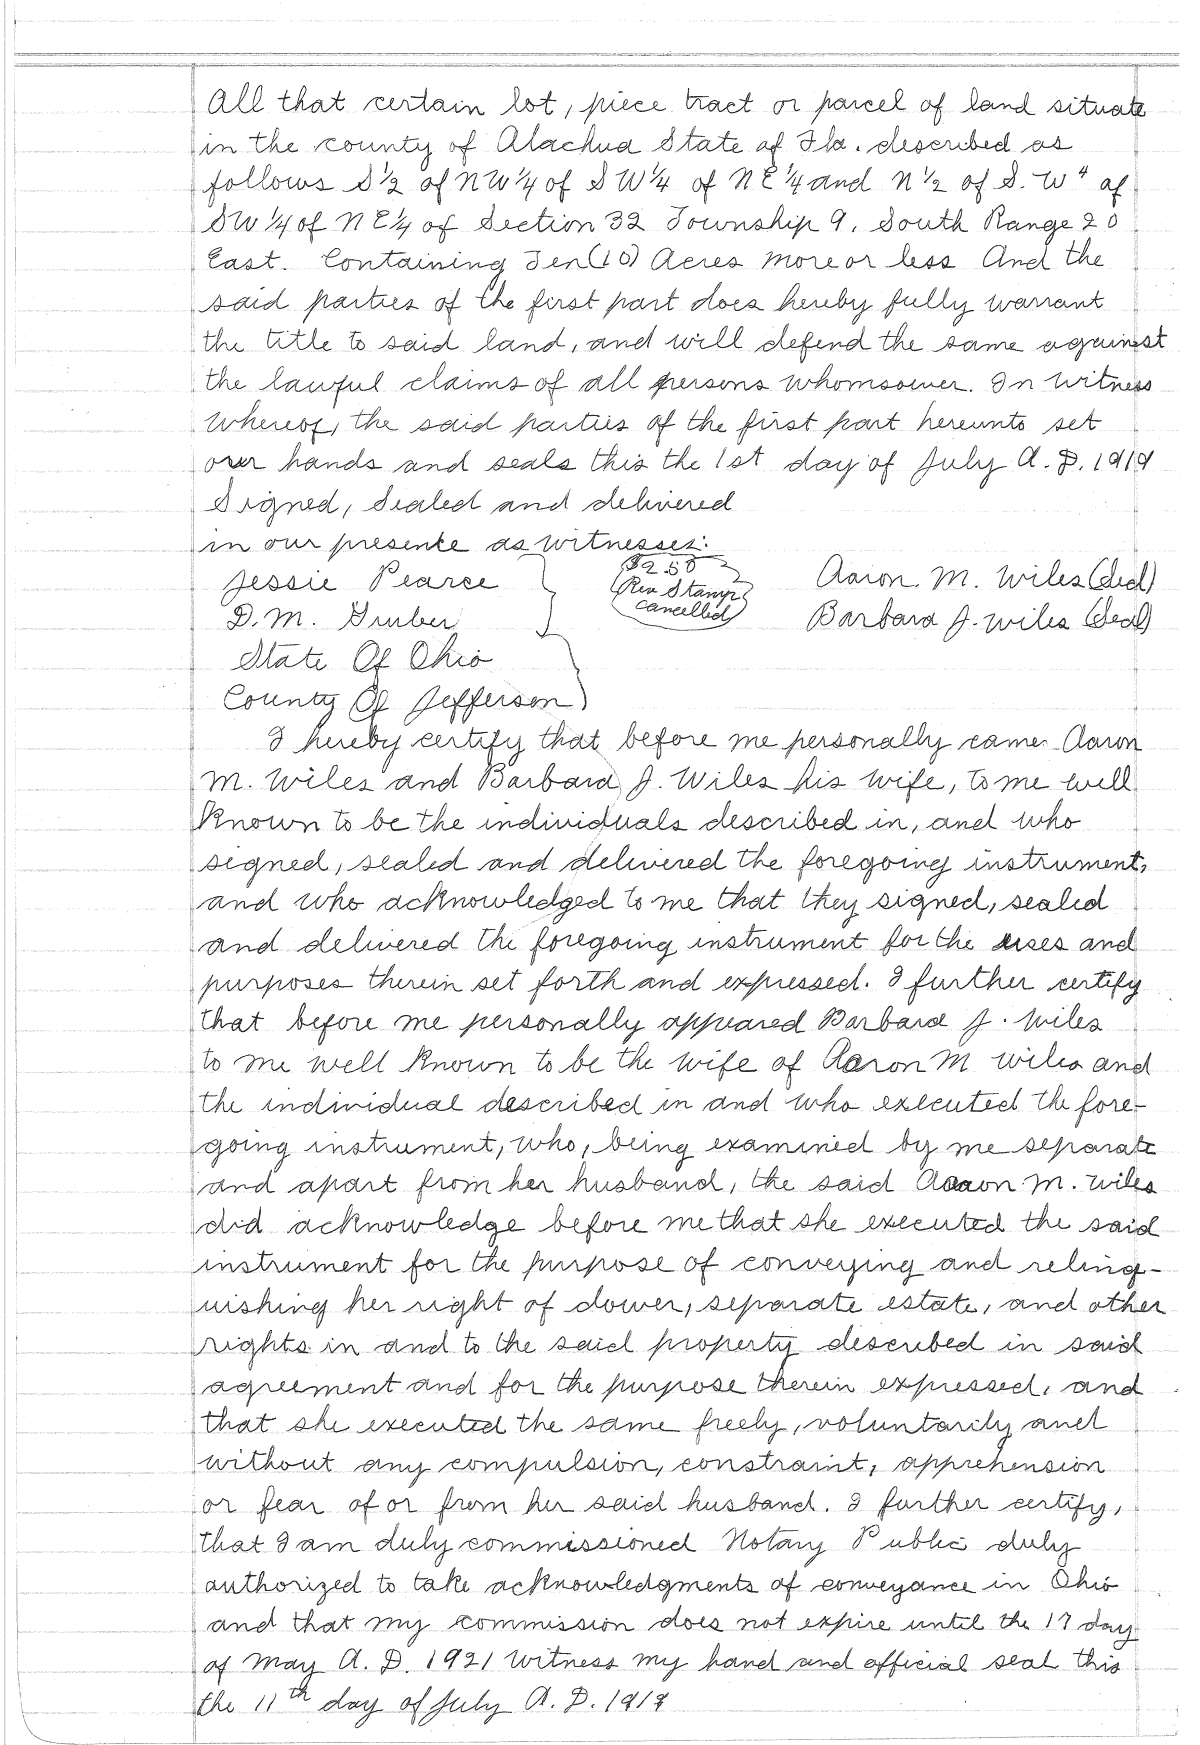 All that certain lot, piece tract or parcel of land situate
in the county of Alachua State of Fla. described as
follows S 1/2 of NW 1/4 of SW 1/4 of NE 1/4 and N 1/2 of S. W" of
SW 1/4 of NE 1/4 of Section 32 Township 9, South Range 20
East. Containing Ten (10) Acres more or less And the
said parties of the first part does hereby fully warrant
the title to said land, and will defend the same against
the lawful claims of all persons whomsoever. In witness
whereof, the said parties of the first part hereunto set
our hands and seals this the 1st day of July A. D. 1919
Signed, Sealed and delivered
in our presence as witnesses:
Jessie Pearce
$2.50
Aaron M. Wiles (Seal)
D. M. Gruber
Rev Stamp
cancelled
Barbara J. Wiles (Seal)
State Of Ohio
County Of Jefferson
I hereby certify that before me personally came Aaron
M. Wiles and Barbara J. Wiles his wife, to me well
known to be the individuals described in, and who
signed, sealed and delivered the foregoing instrument,
and who acknowledged to me that they signed, sealed
and delivered the foregoing instrument for the uses and
purposes therein set forth and expressed. I further certify
that before me personally appeared Barbara J. Wiles
to me well known to be the wife of Aaron M Wiles and
the individual described in and who executed the fore-
going instrument, who, being examined by me separate
and apart from her husband, the said Aaron M. Wiles
did acknowledge before me that she executed the said
instrument for the purpose of conveying and relinq-
uishing her right of dower, separate estate, and other
rights in and to the said property described in said
agreement and for the purpose therein expressed, and
that she executed the same freely, voluntarily and
without any compulsion, constraint, apprehension
or fear of or from her said husband. I further certify,
that I am duly commissioned Notary Public duly
authorized to take acknowledgments of conveyance in Ohio
and that my commission does not expire until the 17 day
of May A. D. 1921 Witness my hand and official seal this
the 11th day of July A. D. 1919